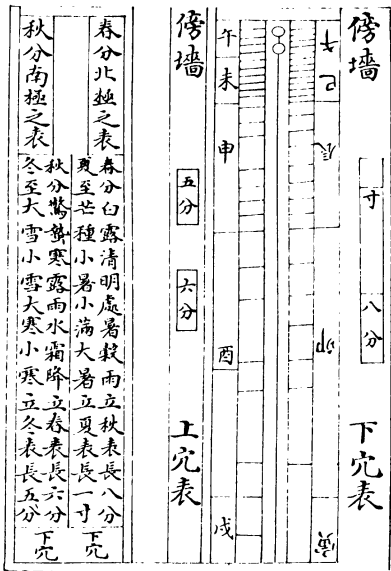 傍墻
寸
八分
下穴表
午
巳
辰
卯
寅
午
未
申
酉
戌
傍墻
五分
六分
上穴表
春分北極之表
春分白露清明處暑穀雨立秋表長八分
夏至芒種小暑小滿大暑立夏表長一寸
下穴
秋分南極之表
秋分驚蟄寒露雨水霜降立春表長六分
冬至大雪小雪大寒小寒立冬表長五分
下穴